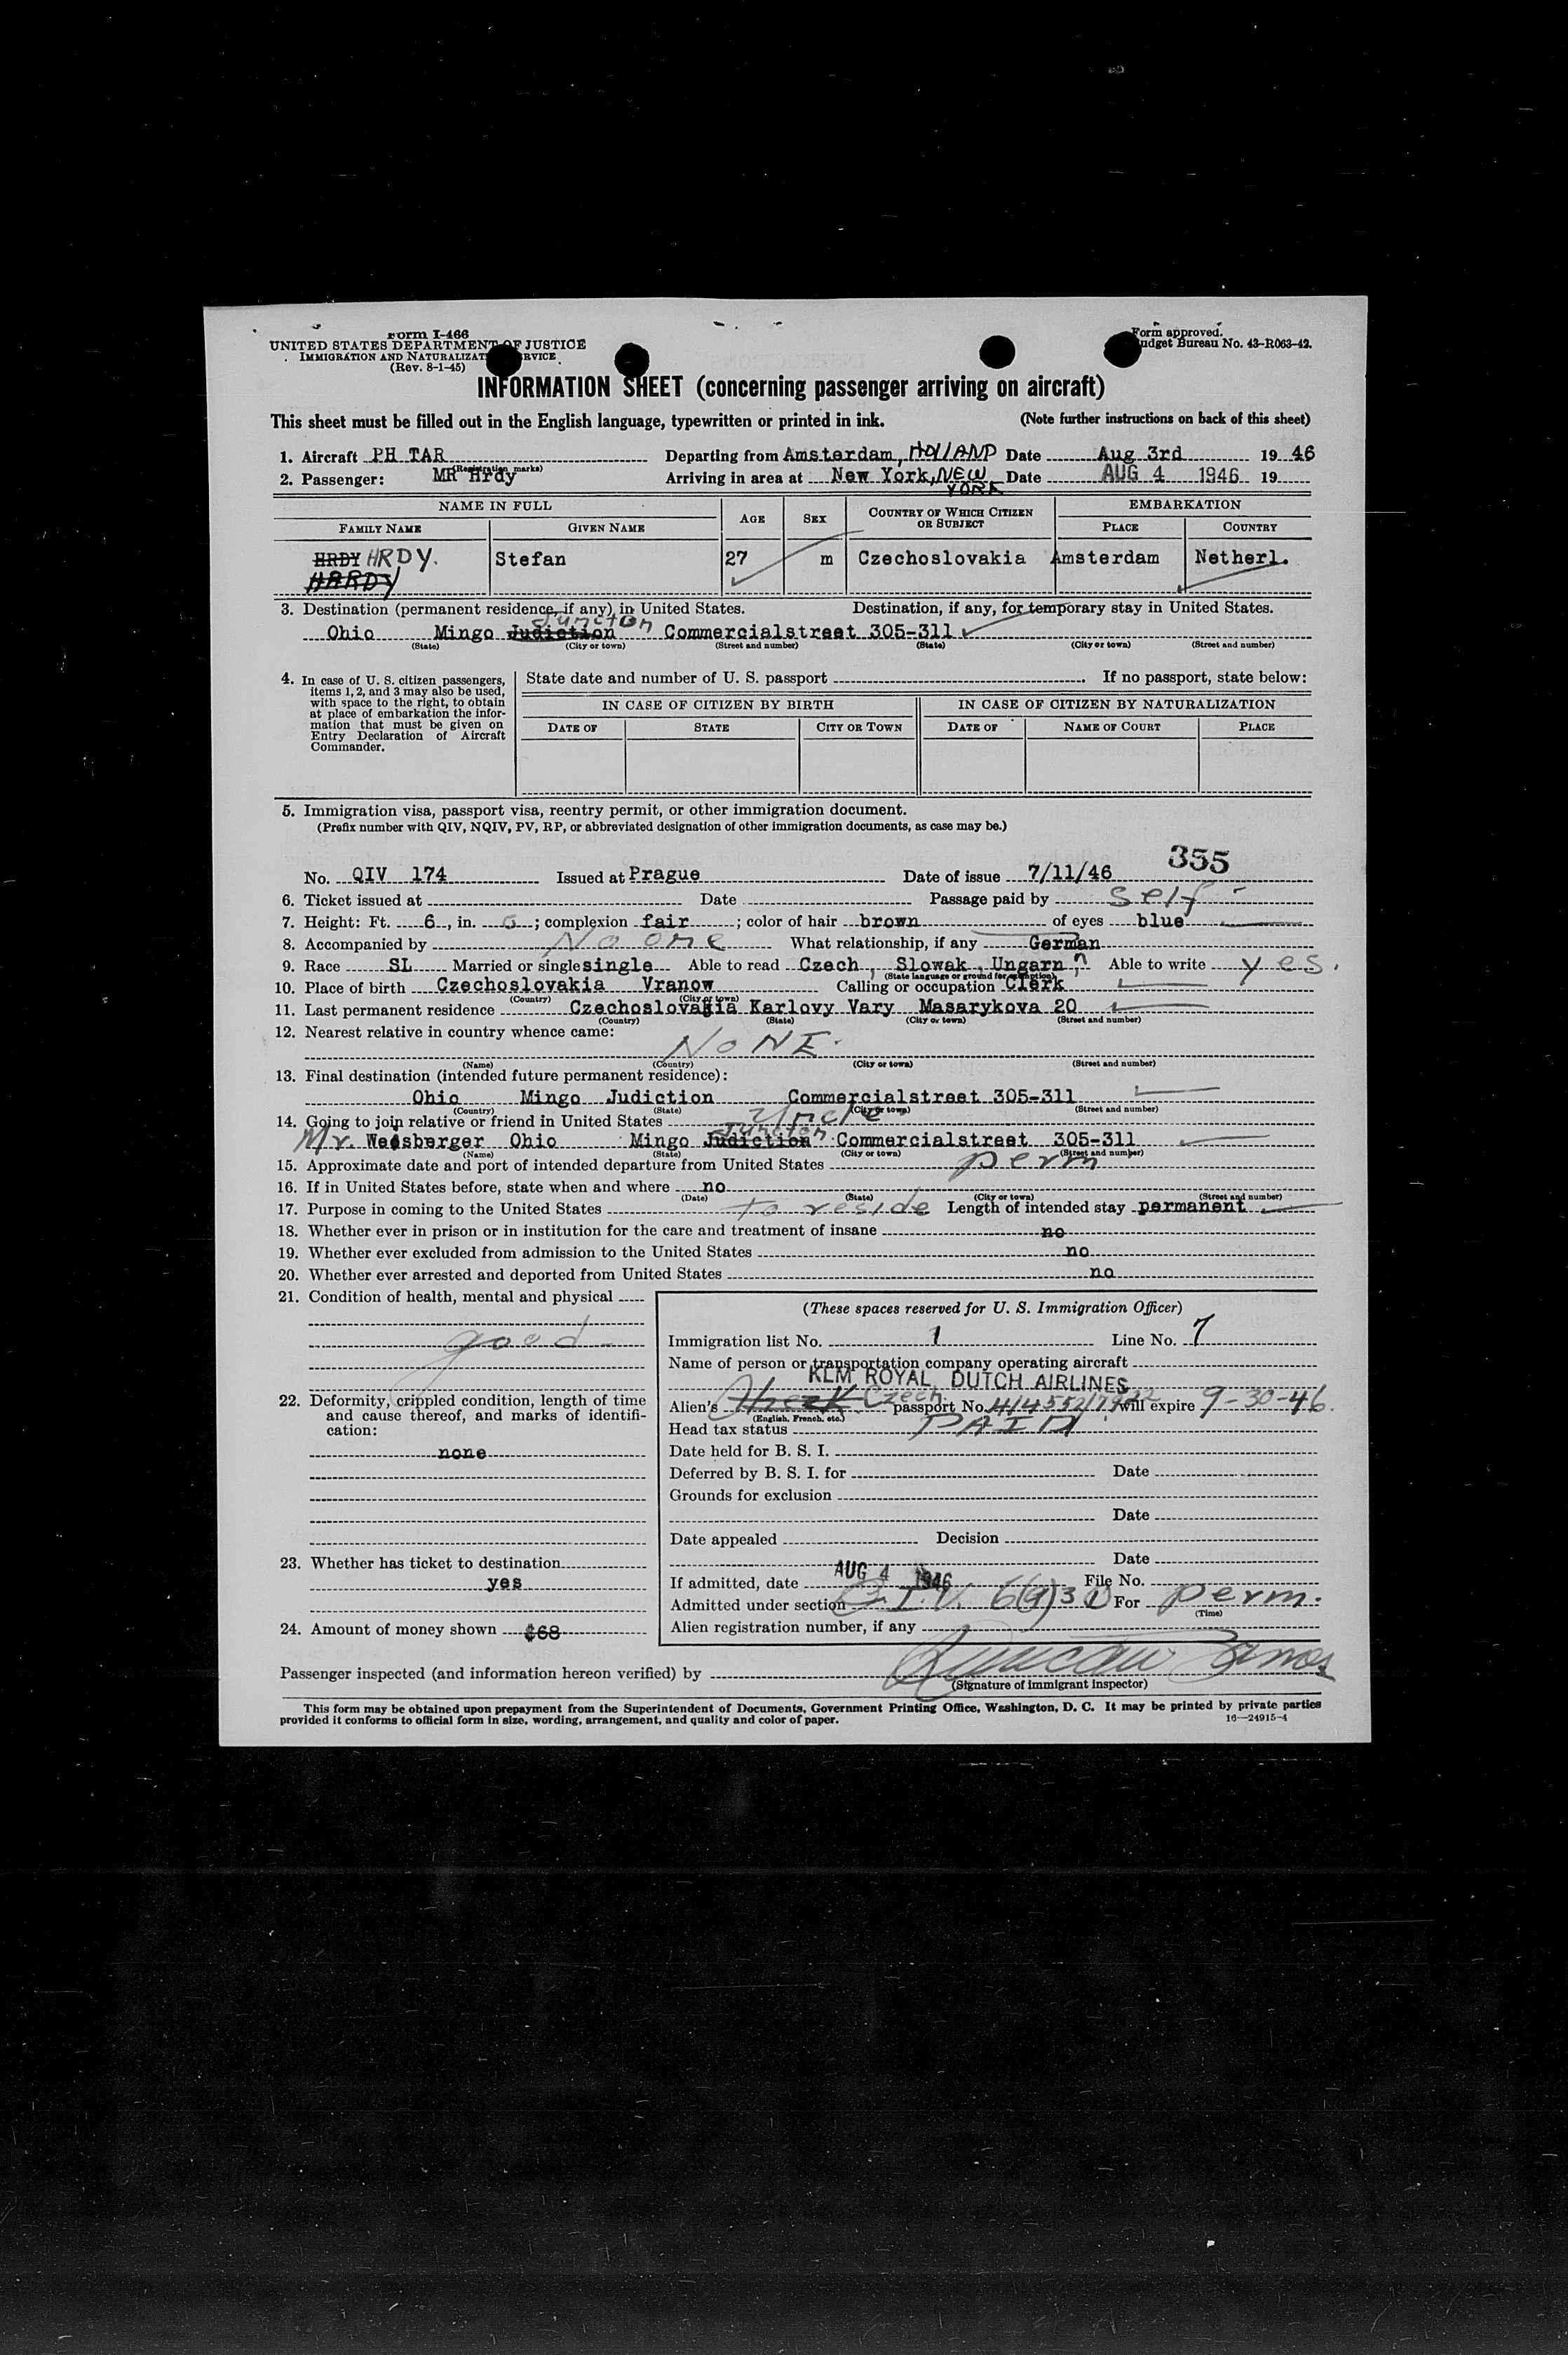 Form I-466
UNITED STATES DEPARTMENT OF JUSTICE
IMMIGRATION AND NATURALIZATION SERVICE
(Rev. 8-1-45)
Form approved.
Budget Bureau No. 43-R063-42.
INFORMATION SHEET (concerning passenger arriving on aircraft)
This sheet must be filled out in the English language, typewritten or printed in ink. (Note further instructions on back of this sheet)
1. Aircraft PH TAR Departing from Amsterdam, HOLLAND Date Aug 3rd 19 46
(Registration marks)
2. Passenger: MR Hrdy Arriving in area at New York, NEW YORK Date AUG 4 1946 19
NAME IN FULL AGE SEX COUNTRY OF WHICH CITIZEN OR SUBJECT EMBARKATION
FAMILY NAME GIVEN NAME PLACE COUNTRY
HRDY HRDY. Stefan 27 m Czechoslovakia Amsterdam Netherl.
HARDY
3. Destination (permanent residence, if any) in United States. Destination, if any, for temporary stay in United States.
Junction
Ohio Mingo Judiction Commercialstreet 305-311
(State) (City or town) (Street and number) (State) (City or town) (Street and number)
4. In case of U. S. citizen passengers, items 1, 2, and 3 may also be used, with space to the right, to obtain at place of embarkation the information that must be given on Entry Declaration of Aircraft Commander.
State date and number of U. S. passport If no passport, state below:
IN CASE OF CITIZEN BY BIRTH IN CASE OF CITIZEN BY NATURALIZATION
DATE OF STATE CITY OR TOWN DATE OF NAME OF COURT PLACE
5. Immigration visa, passport visa, reentry permit, or other immigration document.
(Prefix number with QIV, NQIV, PV, RP, or abbreviated designation of other immigration documents, as case may be.)
355
No. QIV 174 Issued at Prague Date of issue 7/11/46
6. Ticket issued at Date Passage paid by self
7. Height: Ft. 6, in. 5; complexion fair; color of hair brown of eyes blue
8. Accompanied by No one What relationship, if any German
9. Race SL Married or single single Able to read Czech, Slowak, Ungarn, Able to write yes.
(State language or ground for exemption)
10. Place of birth Czechoslovakia Vranow Calling or occupation Clerk
(Country) (City or town)
11. Last permanent residence Czechoslovakia Karlovy Vary Masarykova 20
(Country) (State) (City or town) (Street and number)
12. Nearest relative in country whence came:
NONE.
(Name) (Country) (City or town) (Street and number)
13. Final destination (intended future permanent residence):
Ohio Mingo Judiction Commercialstreet 305-311
(Country) (State) (City or town) (Street and number)
14. Going to join relative or friend in United States Uncle
Junction
Mr. Weisberger Ohio Mingo Judiction Commercialstreet 305-311
(Name) (State) (City or town) (Street and number)
15. Approximate date and port of intended departure from United States perm
16. If in United States before, state when and where no
(Date) (State) (City or town) (Street and number)
17. Purpose in coming to the United States to reside Length of intended stay permanent
18. Whether ever in prison or in institution for the care and treatment of insane no
19. Whether ever excluded from admission to the United States no
20. Whether ever arrested and deported from United States no
21. Condition of health, mental and physical
good
22. Deformity, crippled condition, length of time and cause thereof, and marks of identification:
none
23. Whether has ticket to destination
yes
24. Amount of money shown $68
(These spaces reserved for U. S. Immigration Officer)
Immigration list No. 1 Line No. 7
Name of person or transportation company operating aircraft
KLM ROYAL DUTCH AIRLINES
Alien's Czech passport No. will expire 9-30-46.
(English, French, etc.)
Head tax status PAID
Date held for B. S. I.
Deferred by B. S. I. for Date
Grounds for exclusion
Date
Date appealed Decision
Date
If admitted, date AUG 4 1946 File No.
Admitted under section Q.I.V. 6(a)3 For perm.
(Time)
Alien registration number, if any
Passenger inspected (and information hereon verified) by
(Signature of immigrant inspector)
This form may be obtained upon prepayment from the Superintendent of Documents, Government Printing Office, Washington, D. C. It may be printed by private parties
provided it conforms to official form in size, wording, arrangement, and quality and color of paper. 16—24915-4